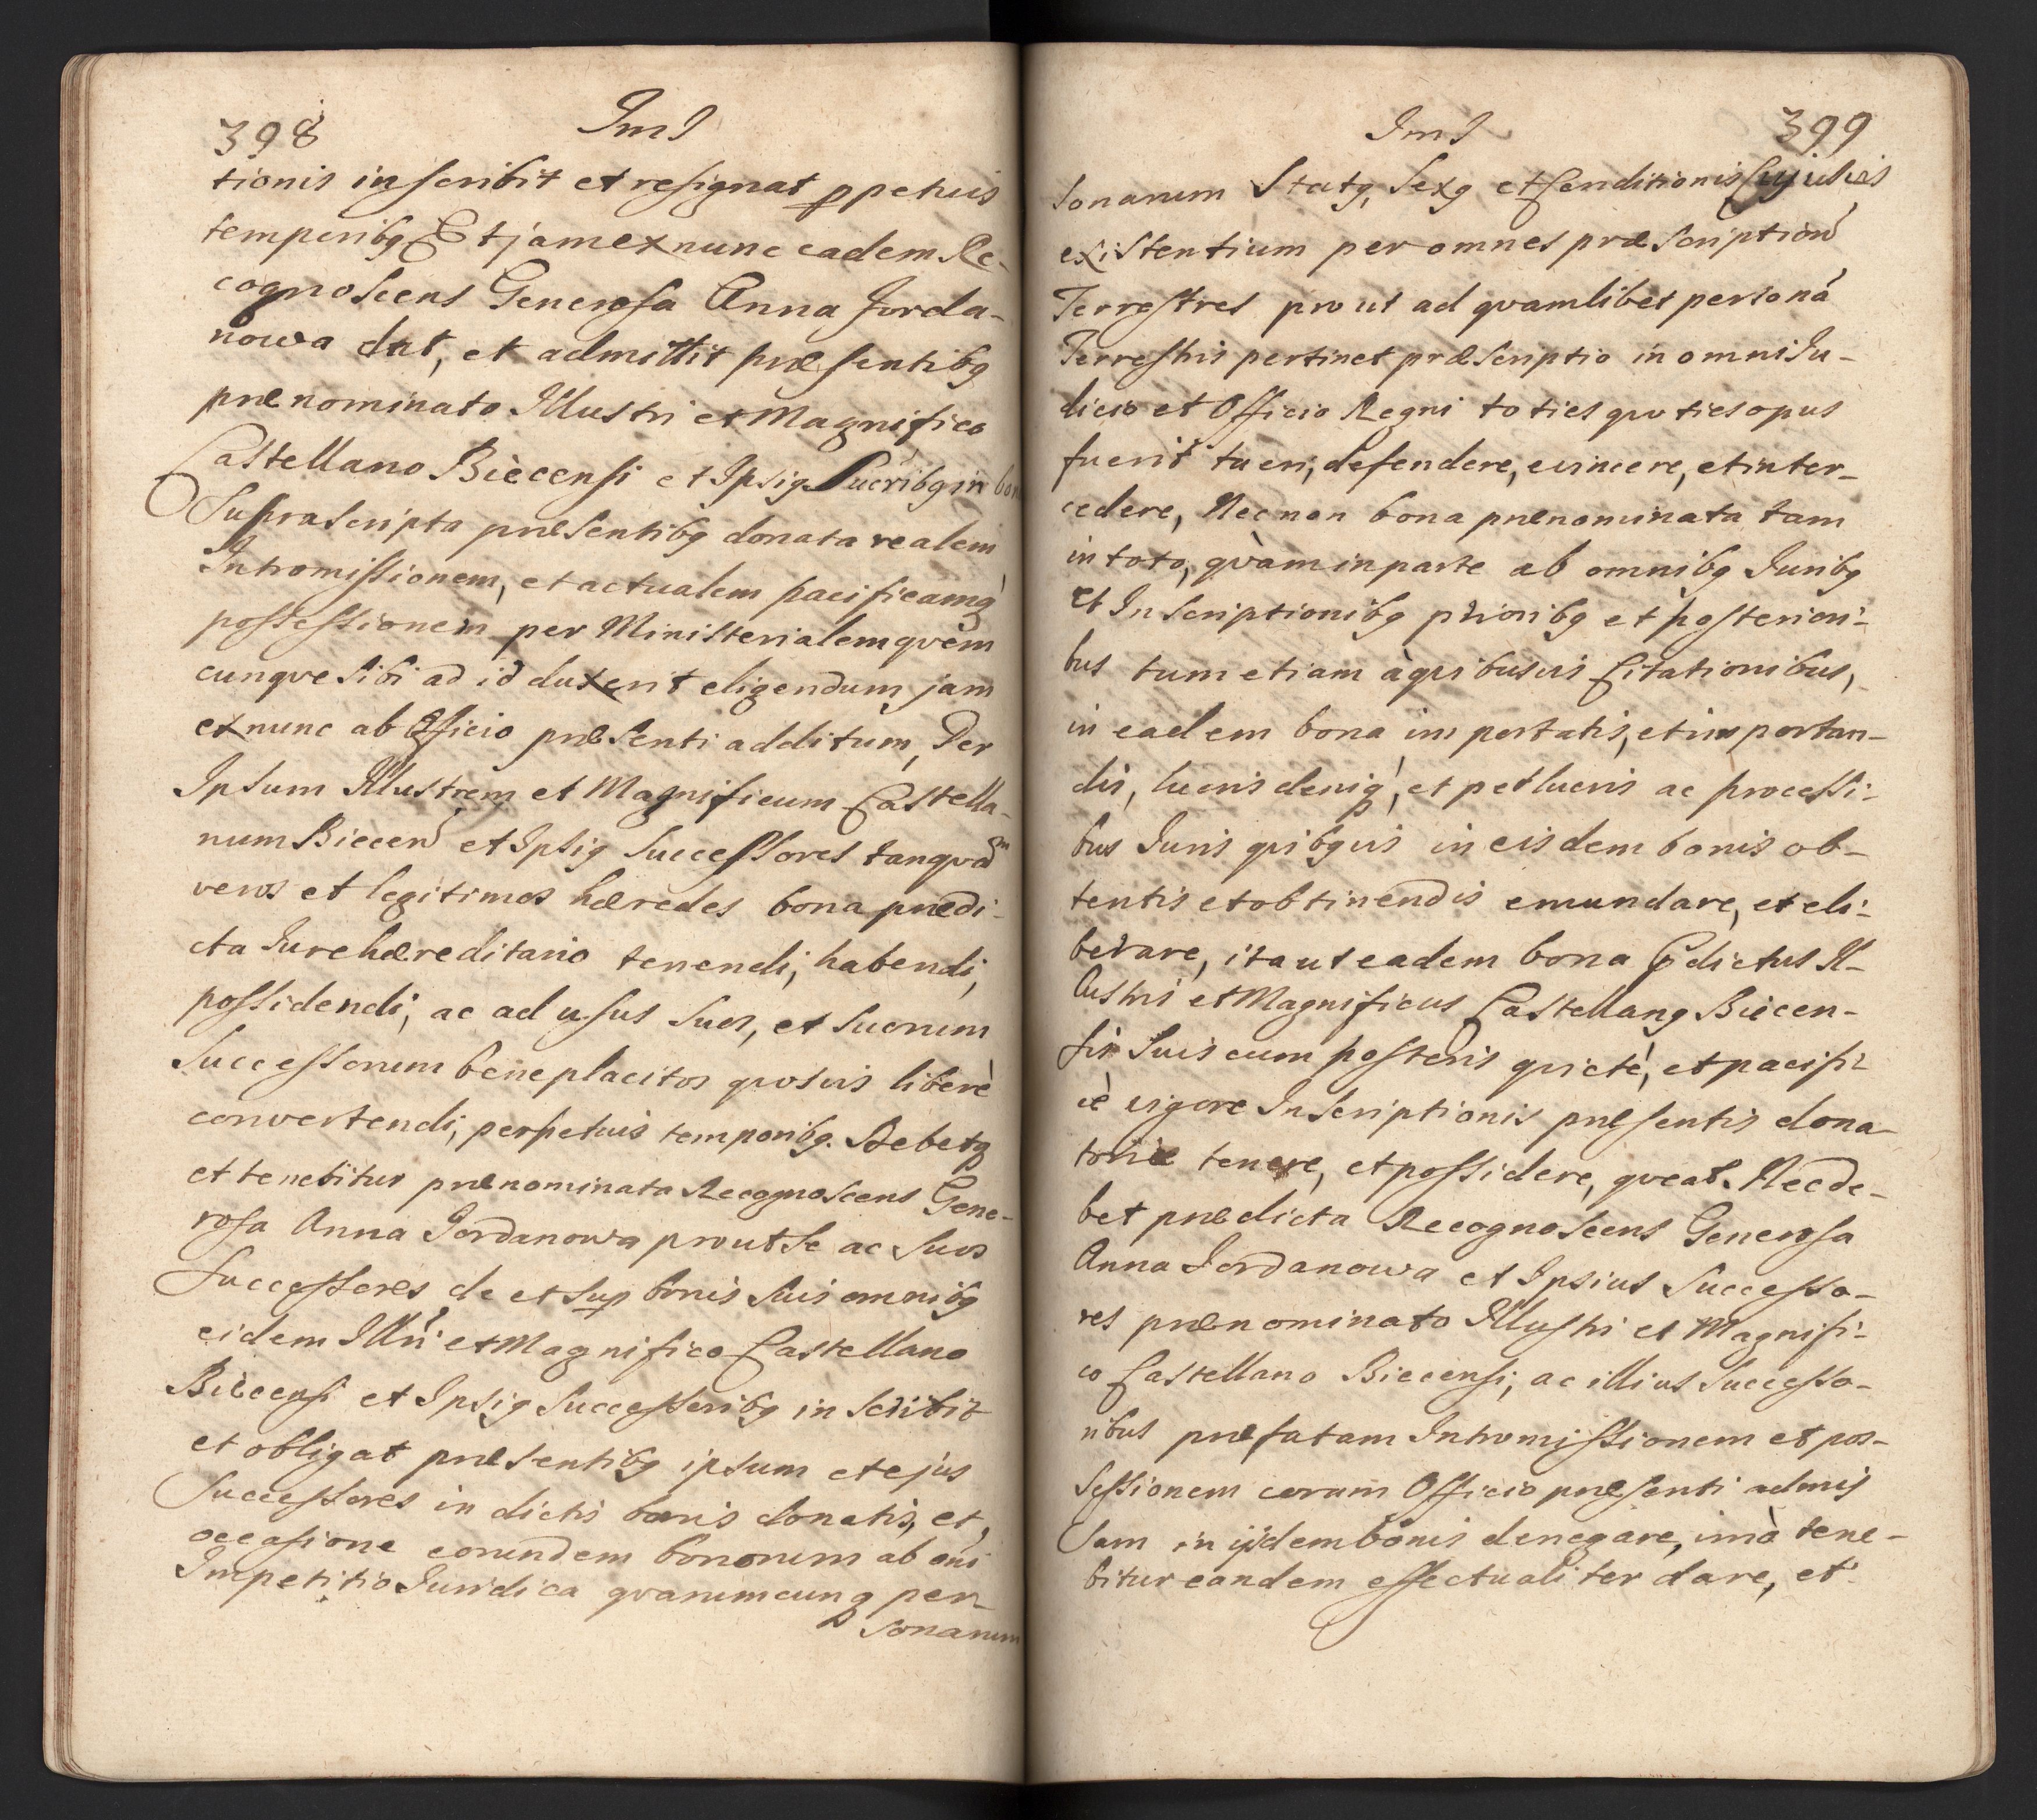 398
ImJ
tionis inscribit et resignat ppetuis
temporibq Et jam ex nunc eadem Re-
cognoscens Generosa Anna Jorda-
nowa dat, et admittit præsentibq
prænominato Illustri et Magnifico
Castellano Biecensi et Ipsiq Sucribq in bon
Suprascripta præsentibq donata realem
Intromissionem, et actualem pacificamq
possessionem per Ministerialem qvem
cunqve sibi ad id duxerit eligendum jam
ex nunc ab Officio præsenti additum, Per
Ipsum Illustrem et Magnificum Castella-
num Biecen et Ipsiq Successores tanqvam
veros et legitimos hæredes bona prædi-
cta Jure hæreditario tenendi, habendi,
possidendi, ac ad usus suos, et suorum
Successorum beneplacitos qvosvis liberè
convertendi, perpetuis temporibq. Debetq
et tenebitur prænominata Recognoscens Gene-
rosa Anna Jordanowa prout se ac suos
Successores de et sup bonis suis omnibq
eidem Illri et Magnifico Castellano
Biecensi et Ipsiq Successoribq inscribit
et obligat præsentibq ipsum et ejus
Successores in dictis bonis donatis, et
occasione eorundem bonorum ab oni
Impetitio Juridica qvarumcunq per-
sonarum
ImJ
399
sonarum Statq, Sexq et Conditionis Cujusvis
existentium per omnes præscription
Terrestres prout ad qvamlibet personá
Terrestris pertinet præscriptio in omni Ju-
dicio et Officio Regni toties qvoties opus
fuerit tueri, defendere, evincere, et inter-
cedere, Nec non bona prænominata tam
in toto, qvàm in parte ab omnibq Juribq
et Inscriptionibq prioribq et posteriori-
bus tum etiam à qvibusvis Citationibus,
in eadem bona importatis, et importan-
dis, lucris deniq, et perlucris ac processi-
bus Juris qvibqvis in eisdem bonis ob-
tentis et obtinendis emundare, et eli-
berare, ita ut eadem bona Pdictus Il-
lustris et Magnificus Castellanq Biecen-
sis suis cum posteris qvietè, et pacifi-
cè vigore Inscriptionis præsentis dona-
toriæ tenere, et possidere, qveat. Nec de-
bet prædicta Recognoscens Generosa
Anna Jordanowa et Ipsius Successo-
res prænominato Illustri et Magnifi-
co Castellano Biecensi, ac illius Successo-
ribus præfatam Intromissionem et pos-
sessionem coram Officio præsenti admis
sam in ijsdem bonis denegare, imò tene-
bitur eandem effectualiter dare, et